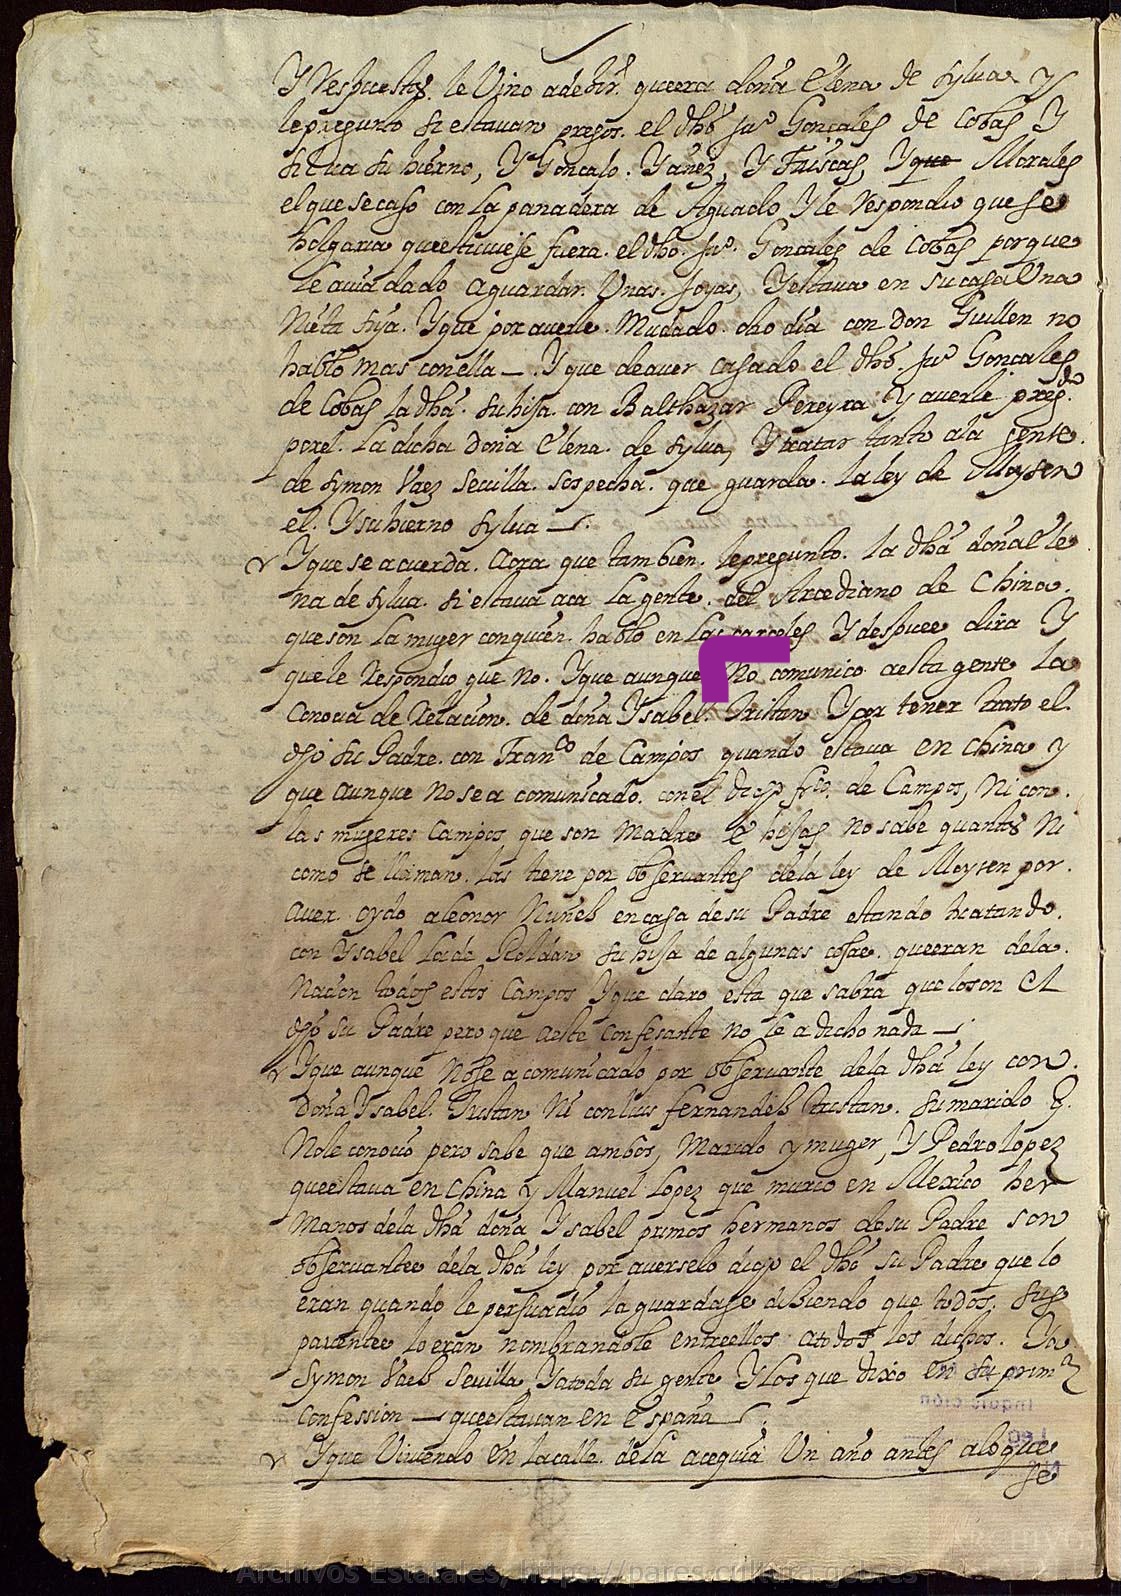 Y Respuesto le Vino adezir queera doña Elena de Sylva Y
lepregunto si estauan presos el dho Juº Gonçales de Cobas Y
Silua su hierno, Y Goncalo Yañez, Y Tuiscas, Yque Morales
el que se caso con La panadera de Aguado Y le Respondio que se
holgaria queestuuiese fuera el dho Juº Gonzales de Cobas porque
Le auia dado aguardar Unas Joyas, Yestaua en su casa Una
Nieta suya Yque por auerle Mudado otro dia con Don Guillen no
hablo mas conella — Yque deauer casado el dho Juº Goncales
de Cobas La dha su hija con Balthazar Pereyra Y auerle pregdo
porel La dicha Doña Elena de Sylua, Ytratar tanto ala gente
de Symon Vaez Seuilla sospecha que guarda La ley de Moysen
el Ysuhierno Sylua —
Yque se acuerda Aora que tambien lepregunto La dha doña Ele
na de Sylua si estaua aca La gente del Arcediano de China
que son La muger conquien hablo en Las carceles Y despues dira Y
quele Respondio que No. Yque aunque No comunico aesta gente La
Conocia de Relacion de doña Ysabel Tristan Ypor tener trato el
dho su Padre con Franco de Campos quando estaua en China y
que aunque No se a comunicado con el dicho frco de Campos, Ni con
las mugeres Campos que son Madre e hijas No sabe quantas Ni
como se llaman Las tiene por obseruantes dela ley de Moysen por
Auer oydo aleonor Nuñes encasa desu Padre estando tratando
con Ysabel La de Roldan su hija de algunas cosas queeran dela
Nacion todos estos Campos Yque claro esta que sabra que loson el
dho su Padre pero que aeste Confesante No le a dicho nada —
Yque aunque Nose acomunicado por obseruante dela dha ley con
Doña Ysabel Tristan Ni conluis fernandes tristan sumarido q
Nole conocio pero sabe que ambos, Marido y muger, Y Pedro Lopez
queestaua en China y Manuel Lopez que murio en Mexico her
Manos dela dha doña Ysabel primos hermanos desu Padre son
obseruantes dela dha ley por auerselo dicho el dho su Padre que lo
eran quando le persuadio laguardase diziendo que todos sus
parientes lo eran nombrandole entreellos atodos los dichos Ya
Symon Vaes Seuilla Yatoda su gente Ylos que dixo en su prima
Confession — queestauan en españa —
Yque Viuiendo en lacalle dela acequia Un año antes aloque
se
Archivos Estatales, https://pares.cultura.gob.es